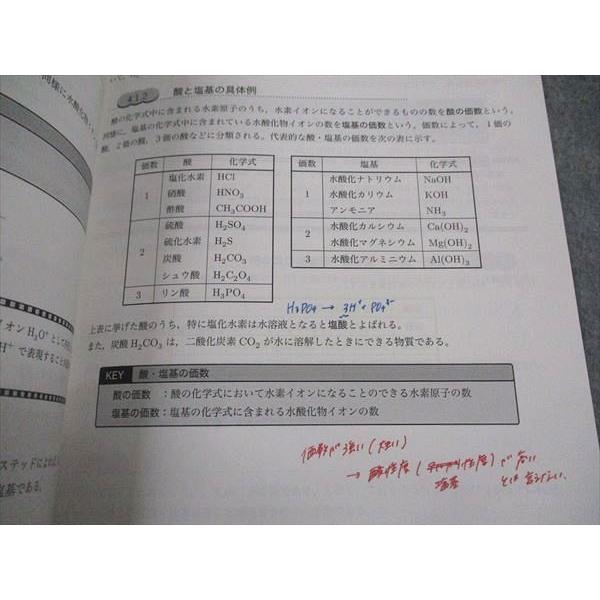 4.1.2 酸と塩基の具体例
酸の化学式中に含まれる水素原子のうち，水素イオンになることができるものの数を酸の価数という。
同様に，塩基の化学式中に含まれている水酸化物イオンの数を塩基の価数という。価数によって，1価の
酸，2価の酸，3価の酸などに分類される。代表的な酸・塩基の価数を次の表に示す。
価数 酸 化学式
1 塩化水素 HCl
硝酸 HNO₃
酢酸 CH₃COOH
2 硫酸 H₂SO₄
硫化水素 H₂S
炭酸 H₂CO₃
シュウ酸 H₂C₂O₄
3 リン酸 H₃PO₄
価数 塩基 化学式
1 水酸化ナトリウム NaOH
水酸化カリウム KOH
アンモニア NH₃
2 水酸化カルシウム Ca(OH)₂
水酸化マグネシウム Mg(OH)₂
3 水酸化アルミニウム Al(OH)₃
H₃PO₄ → 3H⁺ + PO₄³⁻
上表に挙げた酸のうち，特に塩化水素は水溶液となると塩酸とよばれる。
また，炭酸 H₂CO₃ は，二酸化炭素 CO₂ が水に溶解したときにできる物質である。
KEY 酸・塩基の価数
酸の価数 ：酸の化学式において水素イオンになることのできる水素原子の数
塩基の価数：塩基の化学式に含まれる水酸化物イオンの数
価数が強い(大きい)
→ 酸性度( 性度)が高い
塩基
とは言えない.
同様に水酸化
イオン H₃O⁺ として
H⁺ で表現すること
ステッドによれば
塩基である。